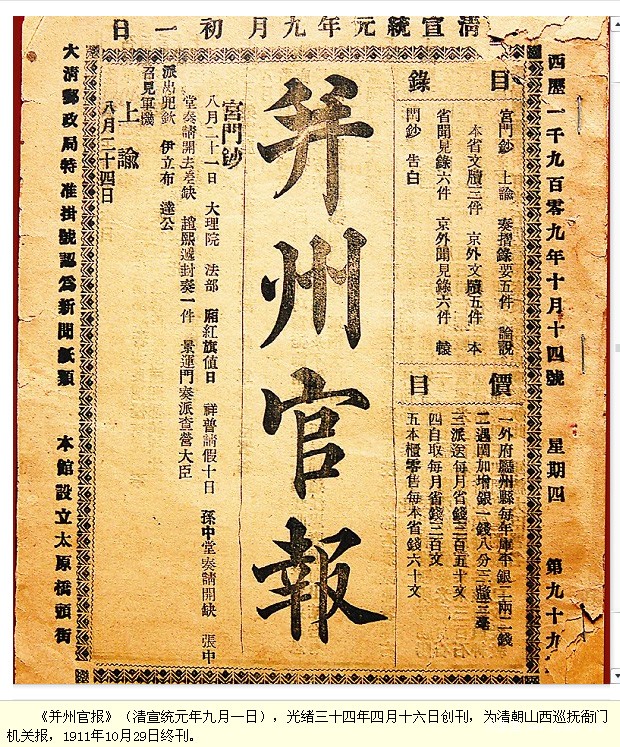 清宣統元年九月初一日
西歷一千九百零九年十月十四號 星期四 第九十九
目錄
宮門鈔 上諭 奏摺錄要五件 論說
本省文牘三件 京外文牘五件 本
省聞見錄六件 京外聞見錄六件 轅
門鈔 告白
價目
一外府廳州縣每年庫平銀二兩二錢
二遇閏加增銀一錢八分三釐三毫
三派送每月省錢三百五十文
四自取每月省錢三百文
五本櫃零售每本省錢六十文
并州官報
宮門鈔
八月二十一日 大理院 法部 廂紅旗值日 祥普請假十日 孫中堂奏請開缺 張中
堂奏請開去差缺 趙熙遞封奏一件 景運門奏派查營大臣
派出 欽 伊立布 達公
召見軍機
上諭
八月二十四日
大清郵政局特准掛號認為新聞紙類 本館設立太原橋頭街
《并州官报》（清宣统元年九月一日），光绪三十四年四月十六日创刊，为清朝山西巡抚衙门
机关报，1911年10月29日终刊。